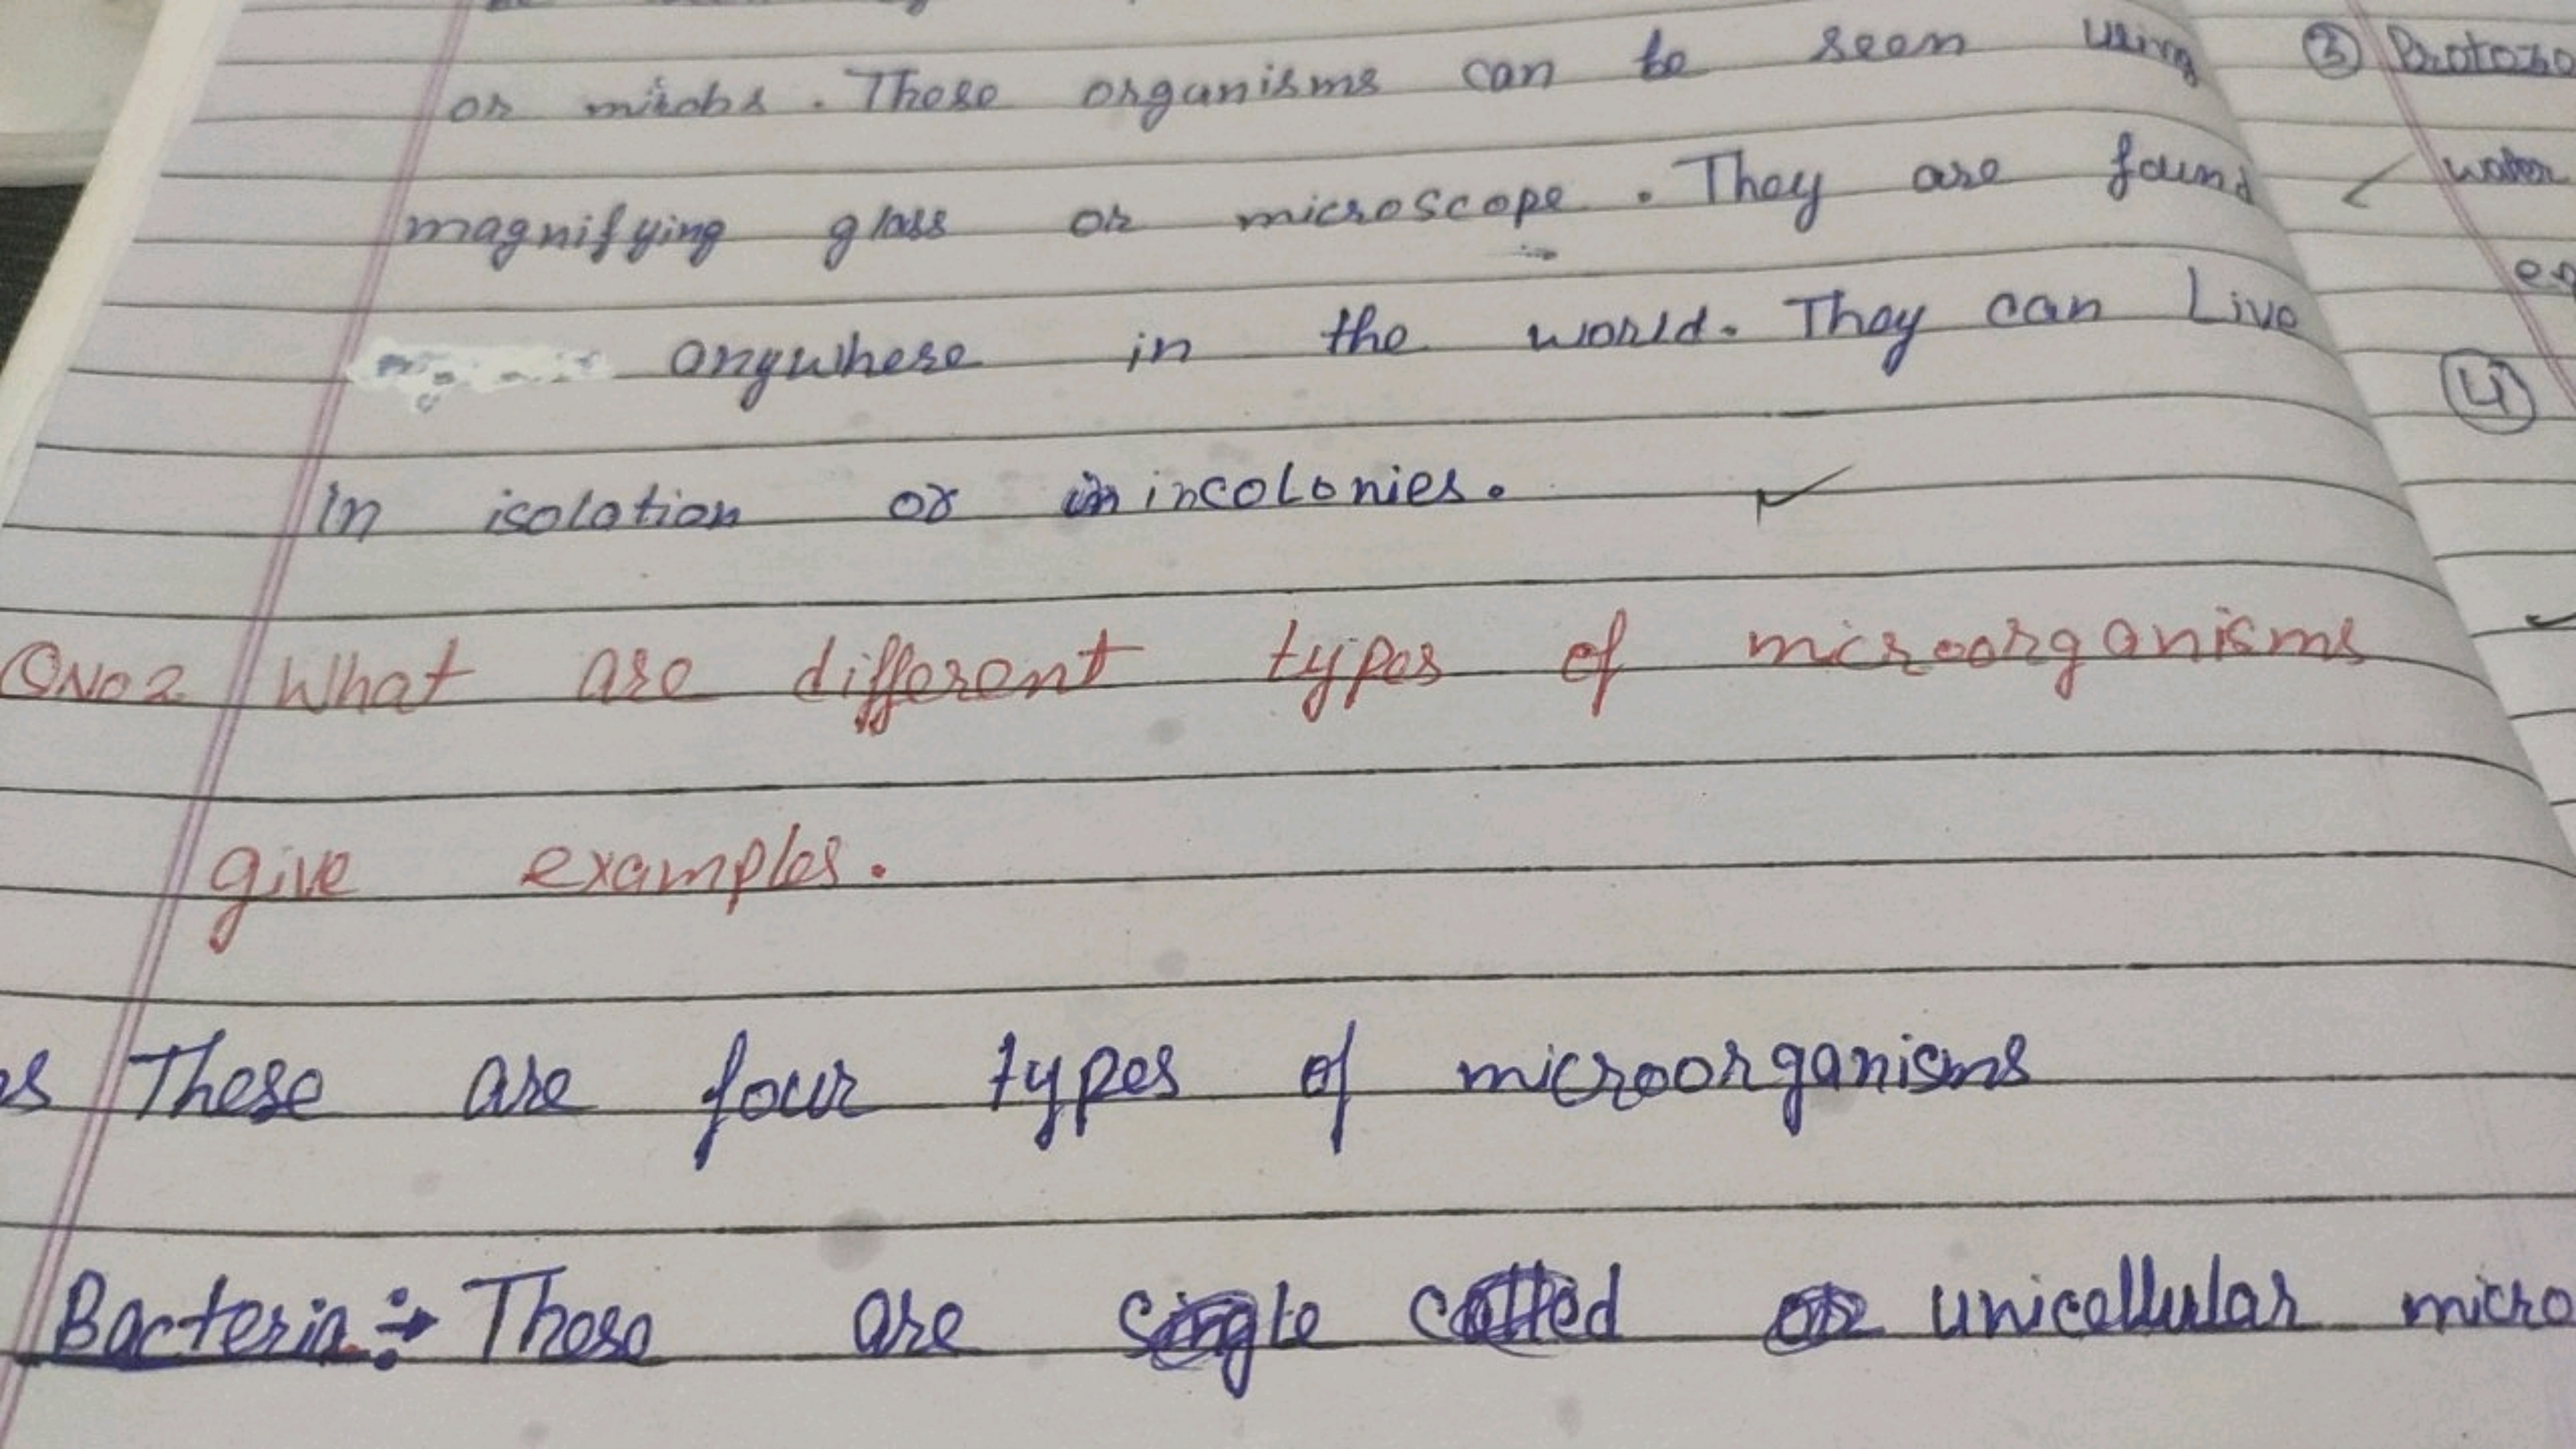 or mirobs. These organisms can be seen using
magnifying glass or microscope. They are found
anywhere in the world. They can Live
in isolation or in incolonies.
QNo2 What are different types of microorganisms
give examples.
These are four types of microorganisms
Bacteria:→ These are single celled or unicellular micro
③ Protozo
water
eg
④